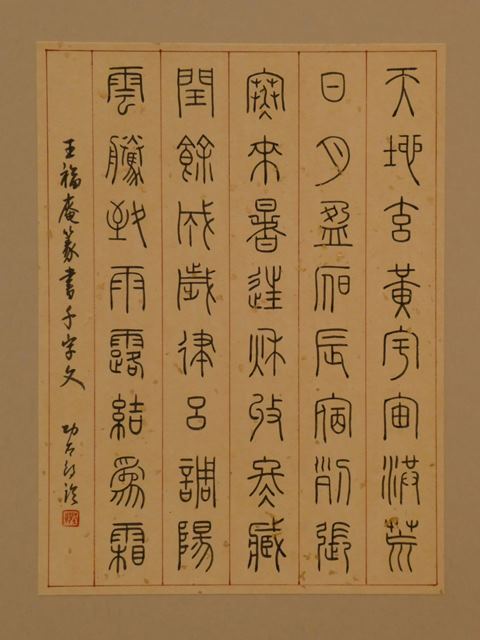 天地玄黃宇宙洪荒
日月盈昃辰宿列張
寒來暑往秋收冬藏
閏餘成歲律呂調陽
雲騰致雨露結為霜
王福庵篆書千字文